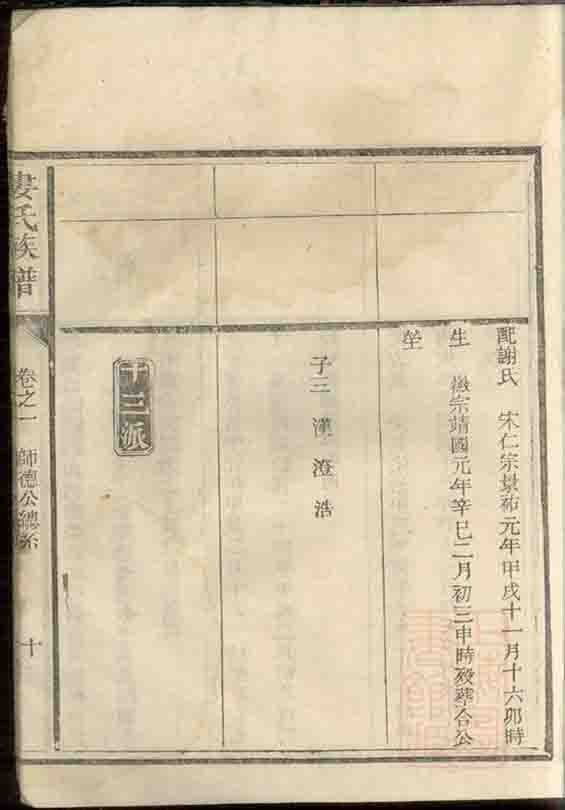 配謝氏 宋仁宗景祐元年甲戌十一月十六卯時
生 徽宗靖國元年辛巳二月初三申時歿葬合公
塋
子三 漢 澄 浩
十三派
婁氏族譜 卷之一 師德公總系 十